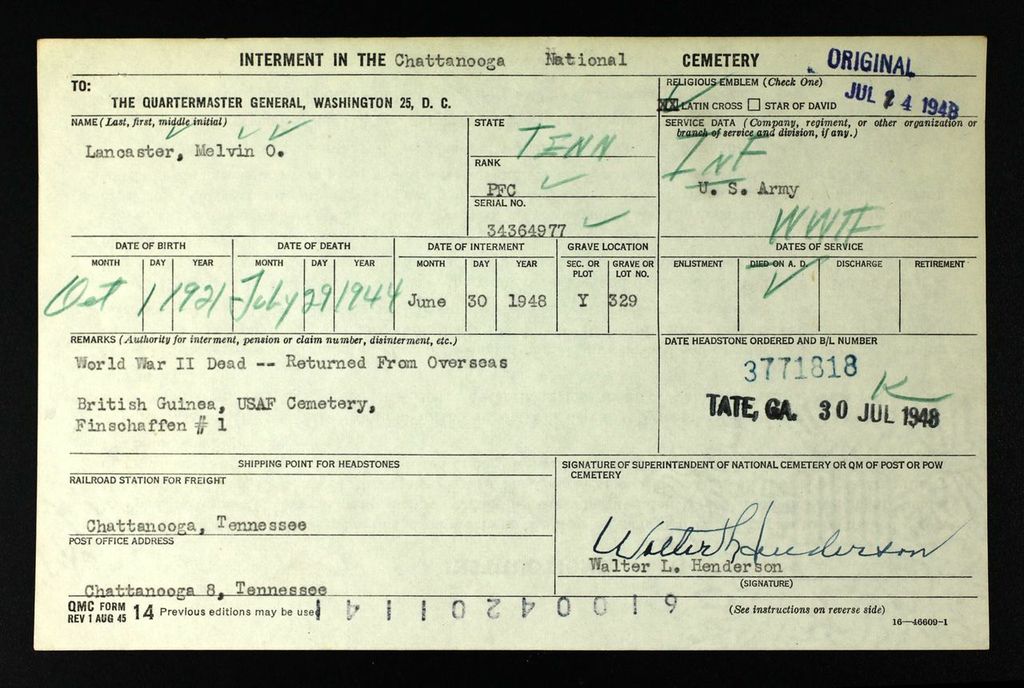 INTERMENT IN THE Chattanooga National CEMETERY
ORIGINAL
JUL 24 1948
TO:
THE QUARTERMASTER GENERAL, WASHINGTON 25, D. C.
RELIGIOUS EMBLEM (Check One)
XX LATIN CROSS ☐ STAR OF DAVID
NAME (Last, first, middle initial)
Lancaster, Melvin O.
STATE
TENN
RANK
PFC
SERIAL NO.
34364977
SERVICE DATA (Company, regiment, or other organization or branch of service and division, if any.)
INF
U. S. Army
WWII
DATE OF BIRTH
MONTH DAY YEAR
Oct 1 1921
DATE OF DEATH
MONTH DAY YEAR
July 29 1944
DATE OF INTERMENT
MONTH DAY YEAR
June 30 1948
GRAVE LOCATION
SEC. OR PLOT GRAVE OR LOT NO.
Y 329
DATES OF SERVICE
ENLISTMENT DIED ON A. D. DISCHARGE RETIREMENT
REMARKS (Authority for interment, pension or claim number, disinterment, etc.)
World War II Dead -- Returned From Overseas
British Guinea, USAF Cemetery,
Finschaffen # 1
DATE HEADSTONE ORDERED AND B/L NUMBER
3771818
K
TATE, GA. 30 JUL 1948
SHIPPING POINT FOR HEADSTONES
RAILROAD STATION FOR FREIGHT
Chattanooga, Tennessee
POST OFFICE ADDRESS
Chattanooga 8, Tennessee
SIGNATURE OF SUPERINTENDENT OF NATIONAL CEMETERY OR QM OF POST OR POW
CEMETERY
Walter L Henderson
Walter L. Henderson
(SIGNATURE)
QMC FORM
REV 1 AUG 45 14 Previous editions may be used
(See instructions on reverse side)
16—46609-1